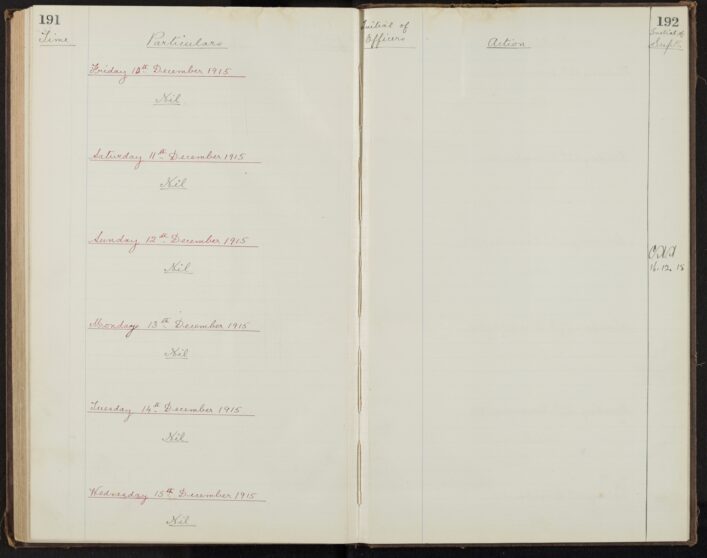 191
Time
Particulars
Friday 10th December 1915
Nil
Saturday 11th December 1915
Nil
Sunday 12th December 1915
Nil
Monday 13th December 1915
Nil
Tuesday 14th December 1915
Nil
Wednesday 15th December 1915
Nil
Initial of
Officers
Action
192
Initial of
16.12.15